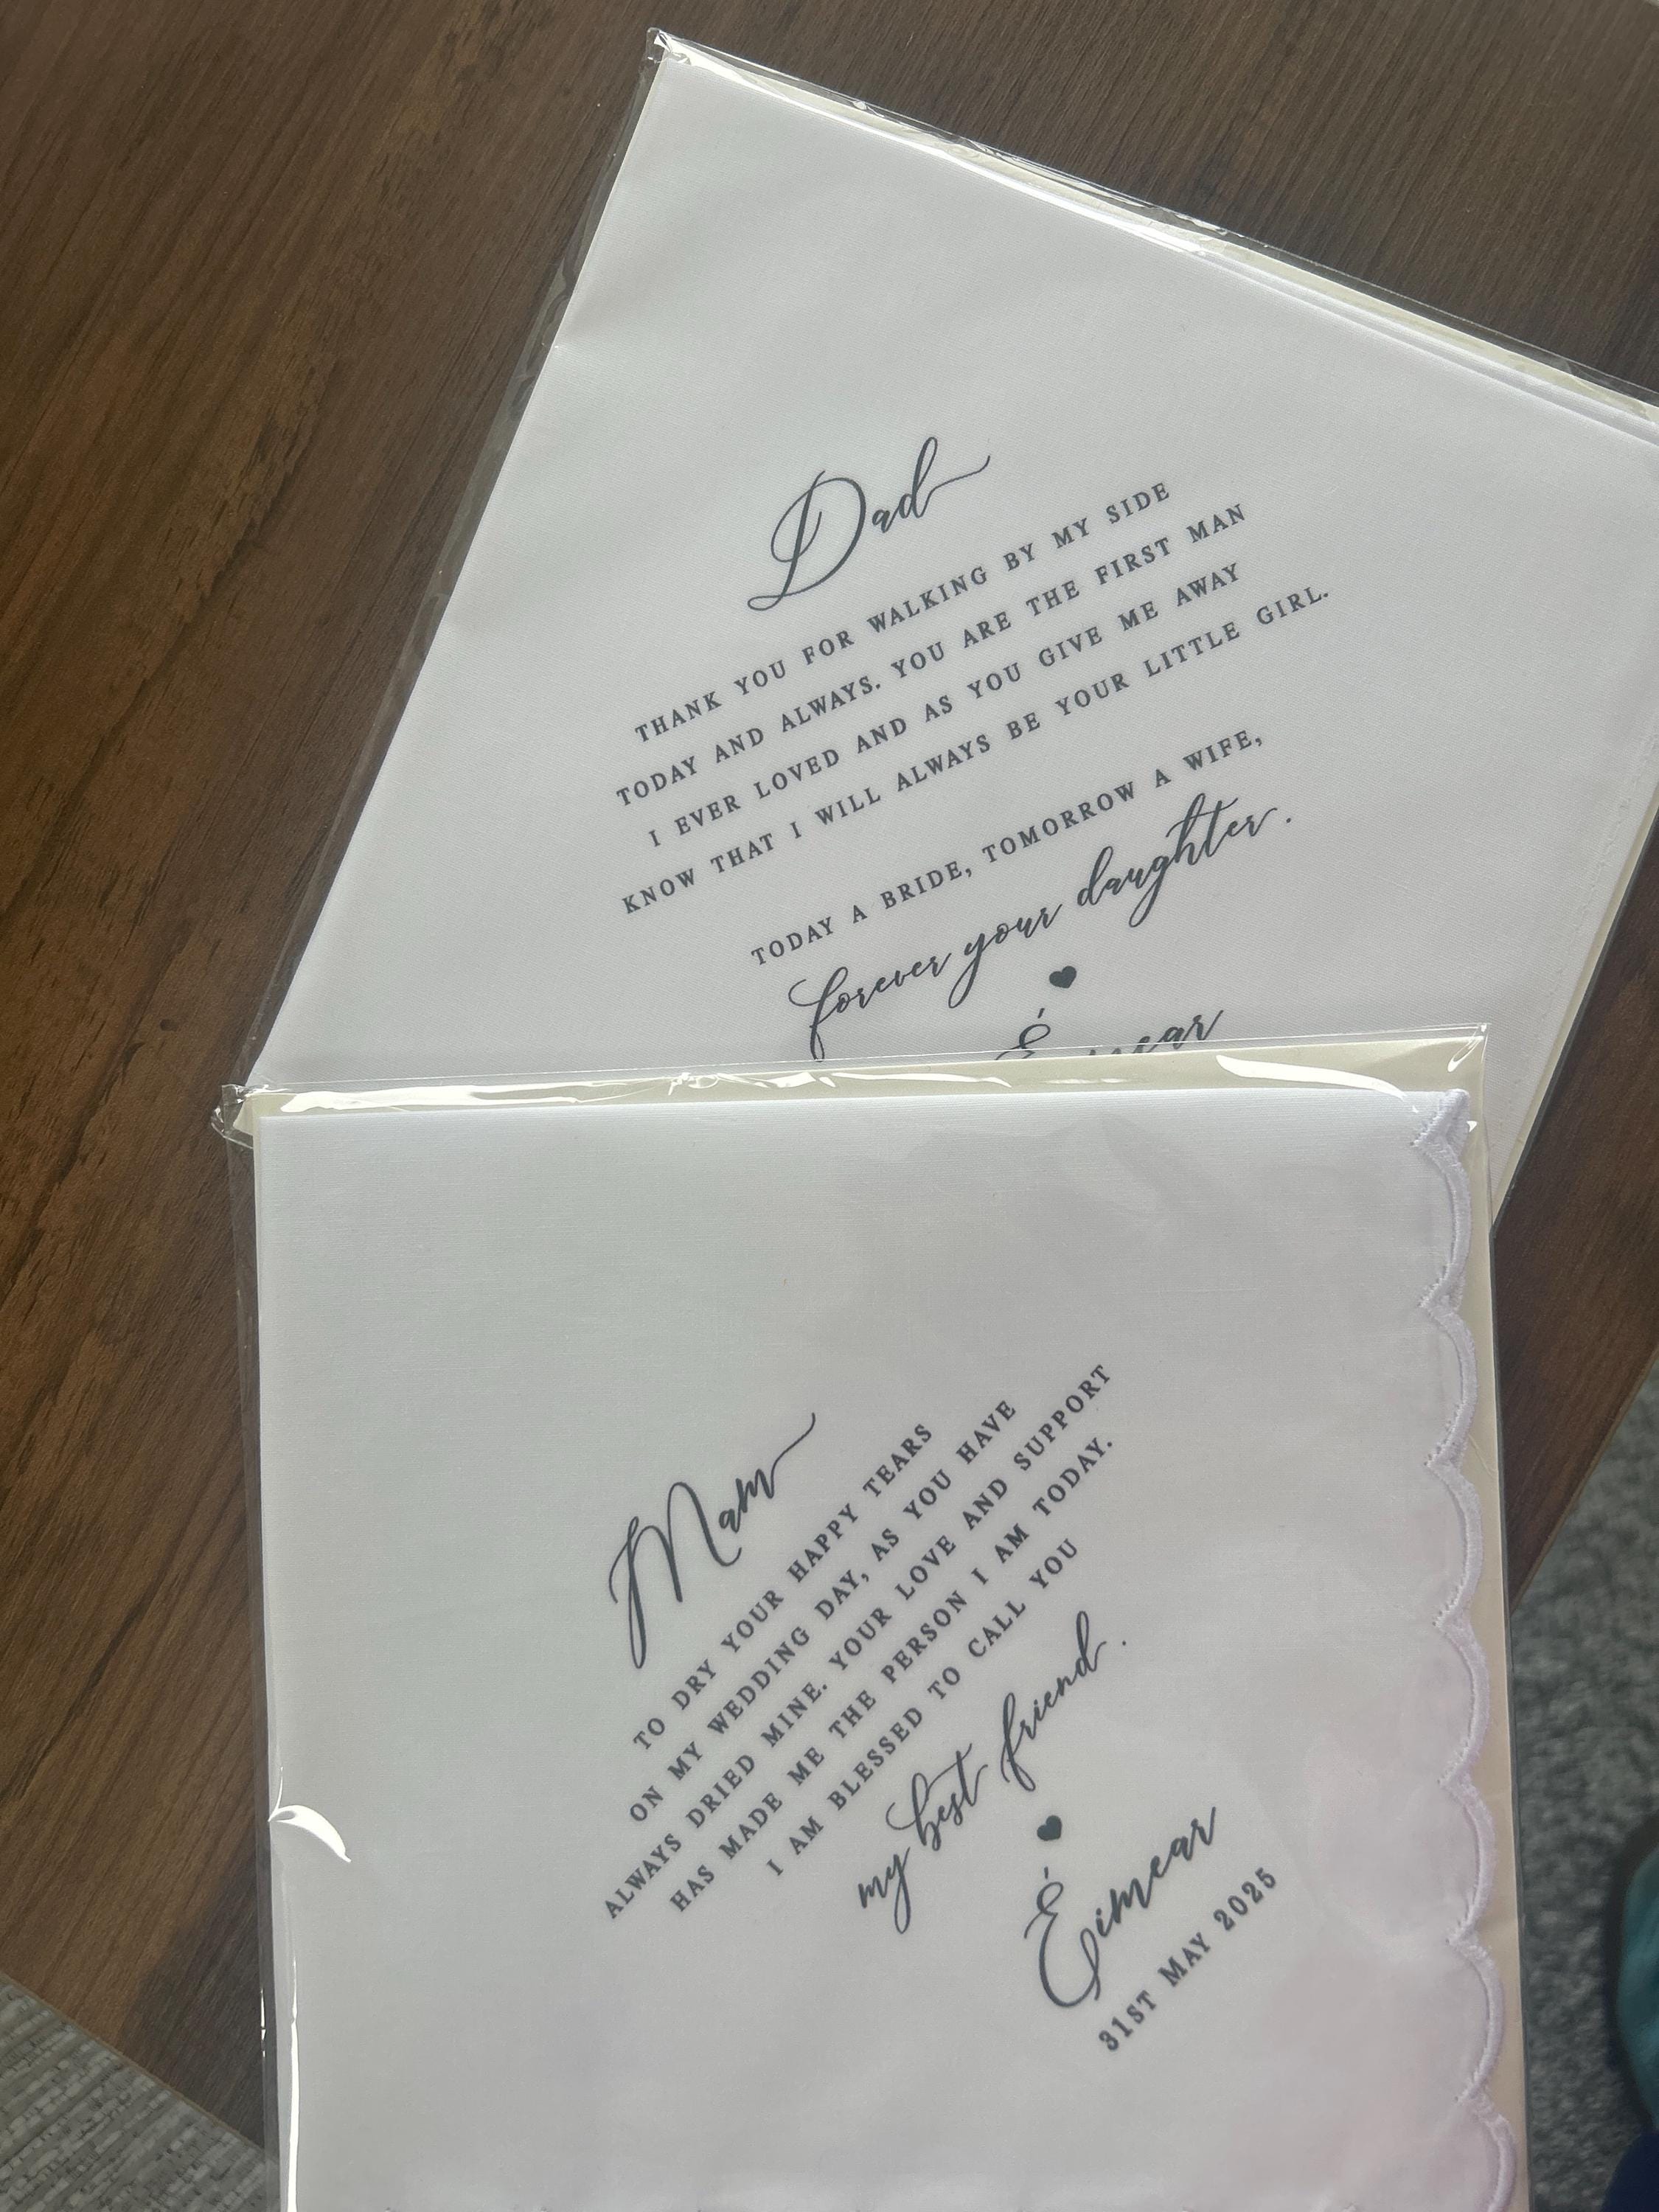 Dad
THANK YOU FOR WALKING BY MY SIDE
TODAY AND ALWAYS. YOU ARE THE FIRST MAN
I EVER LOVED AND AS YOU GIVE ME AWAY
KNOW THAT I WILL ALWAYS BE YOUR LITTLE GIRL.
TODAY A BRIDE, TOMORROW A WIFE,
forever your daughter.
Éimear
Mam
TO DRY YOUR HAPPY TEARS
ON MY WEDDING DAY, AS YOU HAVE
ALWAYS DRIED MINE. YOUR LOVE AND SUPPORT
HAS MADE ME THE PERSON I AM TODAY.
I AM BLESSED TO CALL YOU
my best friend.
Éimear
31ST MAY 2025